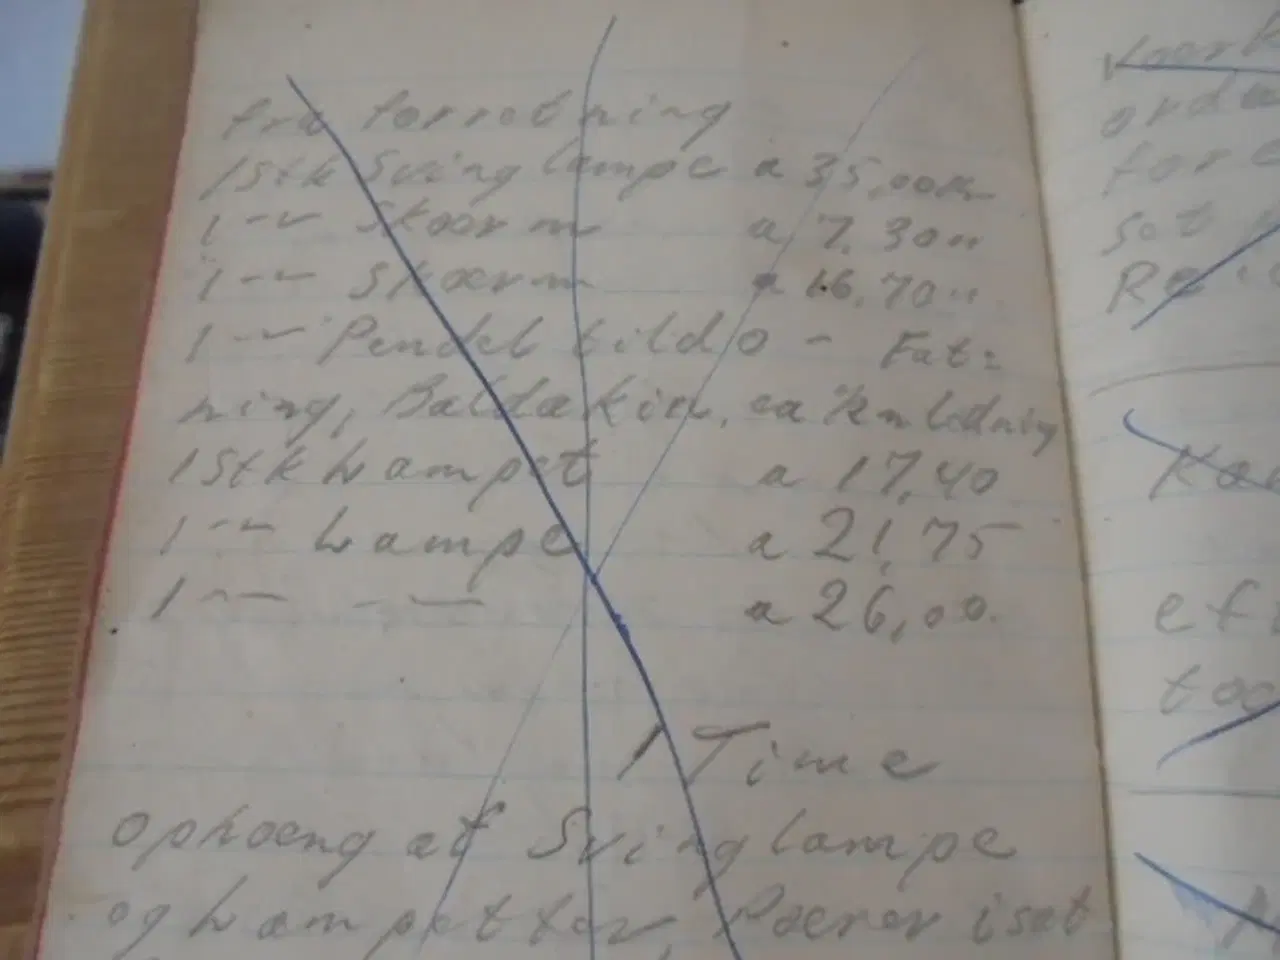 fra forretning
1 Stk Svinglampe a 35,00 Kr
1 -"- Skærm a 7,30 "
1 -"- Skærm a 16,70 "
1 -"- Pendel tild 0 - Fat=
ning, Baldakin, ca Ledning
1 Stk Lampet a 17,40
1 -"- Lampe a 21,75
1 -"- -"- a 26,00
1 Time
ophæng af Svinglampe
og Lampetter, Pærer isat
ord
fore
sat
Re
Ko
ef
too